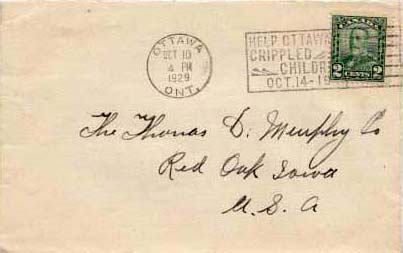 OTTAWA
OCT 10
4 PM
1929
ONT.
HELP OTTAWA
CRIPPLED
CHILDR
OCT. 14-19
CANADA
2 CENTS 2
The Thomas D. Murphy Co
Red Oak Iowa
U. S. A